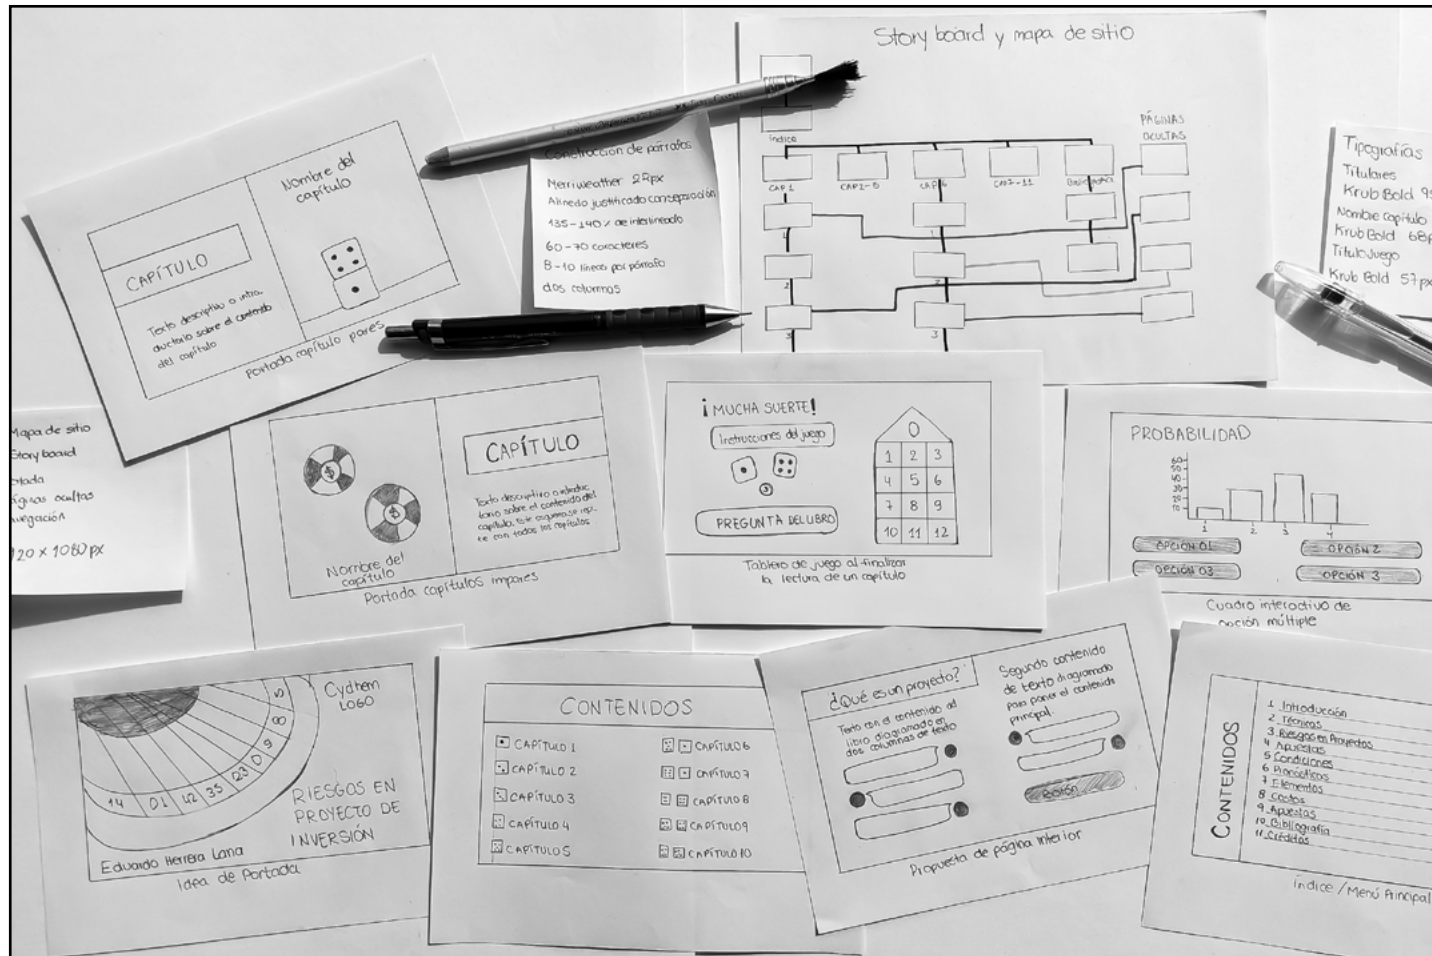 Story board y mapa de sitio
índice
CAP 1
CAP 2-5
CAP 6
CAP 7-11
Bibliografía
PÁGINAS
OCULTAS
1
2
3
1
2
3
Nombre del
capítulo
CAPÍTULO
Texto descriptivo o intro.
ductorio sobre el contenido
del capítulo
Portada capítulo pares
Construcción de párrafos
Merriweather 22px
Alinedo justificado con separación
135-140% de interlineado
60-70 caracteres
8-10 líneas por párrafo
dos columnas
Tipografías
Titulares
Krub Bold
Nombre capítulo
Krub Bold 68p
Titulo Juego
Krub Bold 57px
Mapa de sitio
Story board
ocultas
20 x 1080 px
$
$
Nombre del
capítulo
CAPÍTULO
Texto descriptivo o introduc
torio sobre el contenido del
capítulo. Este esquema se repi
te con todos los capítulos
Portada capítulos impares
¡MUCHA SUERTE!
Instrucciones del juego
PREGUNTA DEL LIBRO
0
1 2 3
4 5 6
7 8 9
10 11 12
Tablero de juego al finalizar
la lectura de un capítulo
PROBABILIDAD
60
50
40
30
20
10
1 2 3 4
OPCIÓN 01
OPCIÓN 2
OPCIÓN 03
OPCIÓN 3
Cuadro interactivo de
opción múltiple
Cydhem
LOGO
14 01 42 35 23 0 9 8 5
RIESGOS EN
PROYECTO DE
INVERSIÓN
Eduardo Herrera Lana
Idea de Portada
CONTENIDOS
CAPÍTULO 1
CAPÍTULO 2
CAPÍTULO 3
CAPÍTULO 4
CAPÍTULO 5
CAPÍTULO 6
CAPÍTULO 7
CAPÍTULO 8
CAPÍTULO 9
CAPÍTULO 10
¿Qué es un proyecto?
Texto con el contenido del
libro diagramado en
dos columnas de texto
Segundo contenido
de texto diagramado
para poner el contenido
principal.
Botón
Propuesta de página interior
CONTENIDOS
1 Introducción
2 Técnicas
3 Riesgos en Proyectos
4 Apuestas
5 Condiciones
6 Pronósticos
7 Elementos
8 Costos
9 Apuestas
10 Bibliografía
11 Créditos
índice / Menú Principal